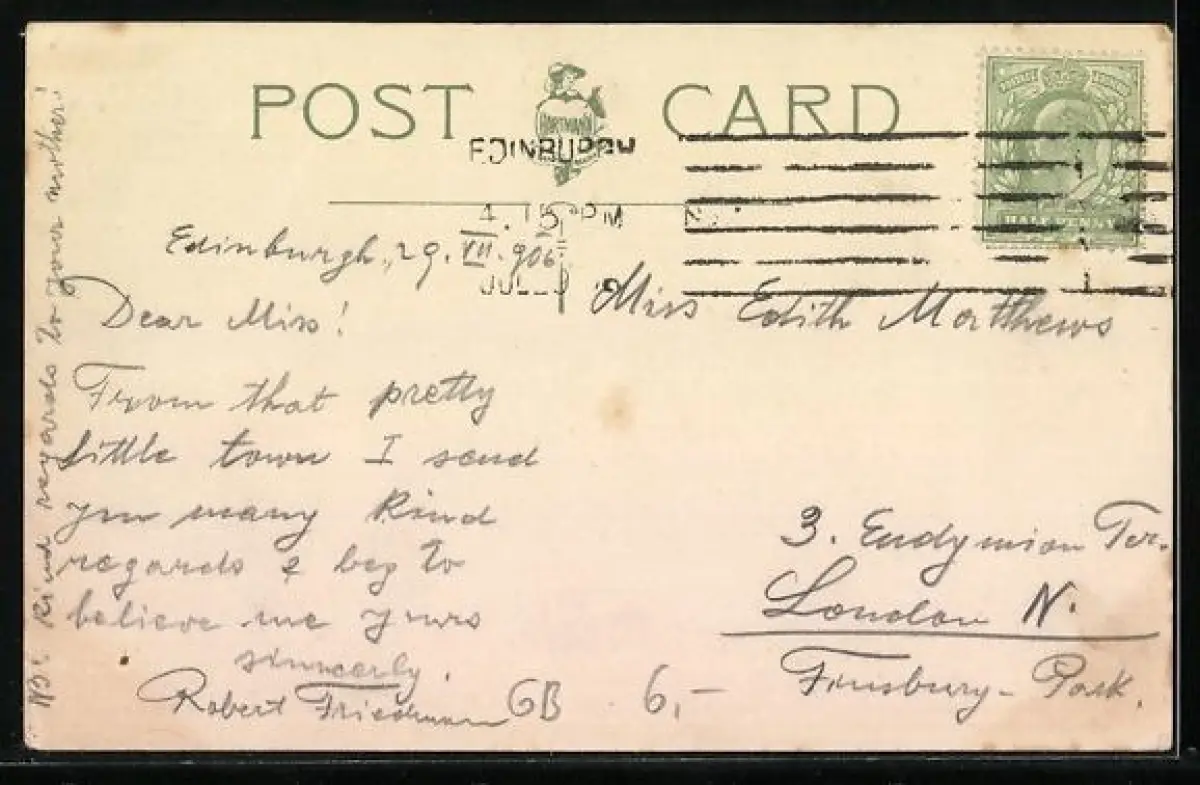 POST CARD
HARTMANN
EDINBURGH
4.15 PM
JUL 29
HALF PENNY
Edinburgh, 29. VII. 906
Dear Miss!
From that pretty
little town I send
you many kind
regards & beg to
believe me yours
sinncerly.
Robert Friedmann
NB: Kind regards to your mother!
Miss Edith Matthews
3. Endymion Ter.
London N.
Finsbury-Park.
GB 6,-